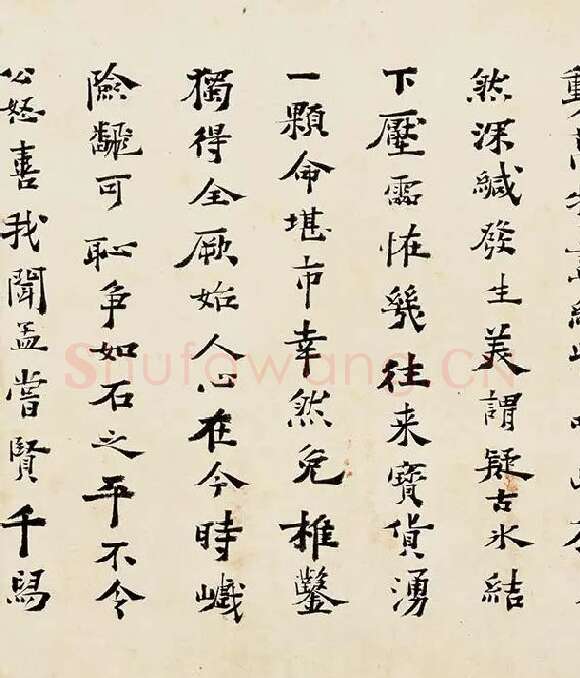 然深緘發生美謂疑古氷結
下壓怪幾往来寶貨湧
一顆命堪市幸然免椎鑿
獨得全厥始人心在今時巇
險可恥争如石之平不令
公怒喜我聞孟嘗賢千
Shufawang CN